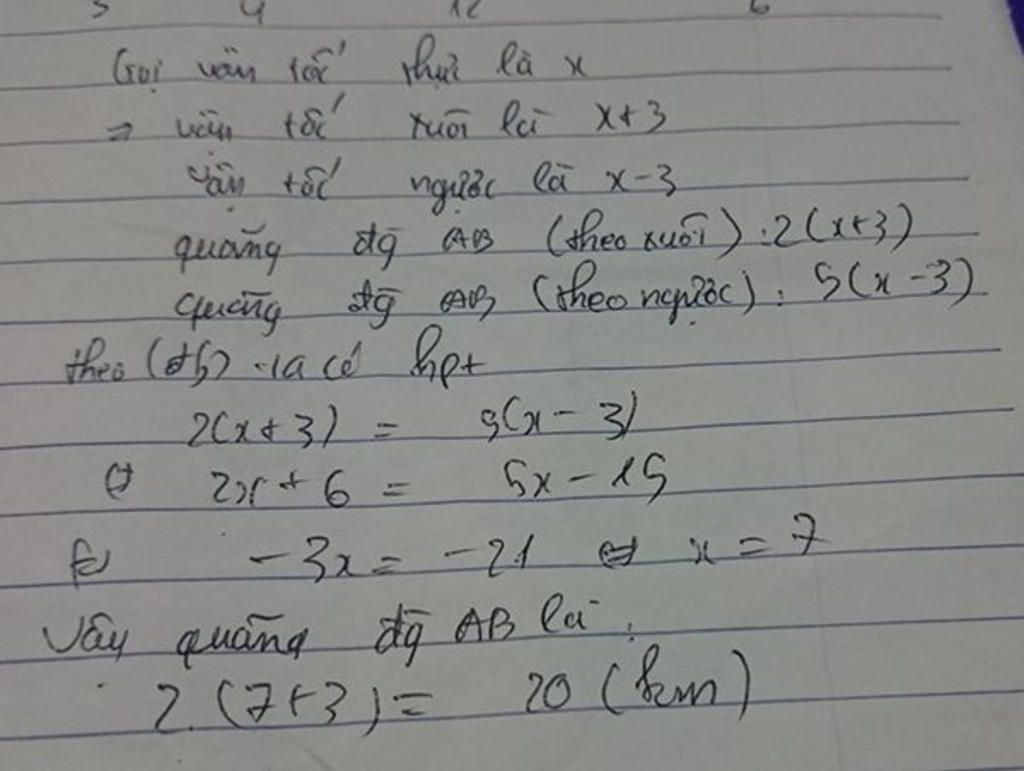 Gọi vận tốc thực là x
=> vận tốc xuôi là x+3
vận tốc ngược là x-3
quãng đg AB (theo xuôi): 2(x+3)
quãng đg AB (theo ngược): 5(x-3)
theo (đb) ta có hpt
2(x+3) = 5(x-3)
⇔ 2x+6 = 5x-15
⇔ -3x = -21 ⇔ x = 7
Vậy quãng đg AB là:
2.(7+3) = 20 (km)